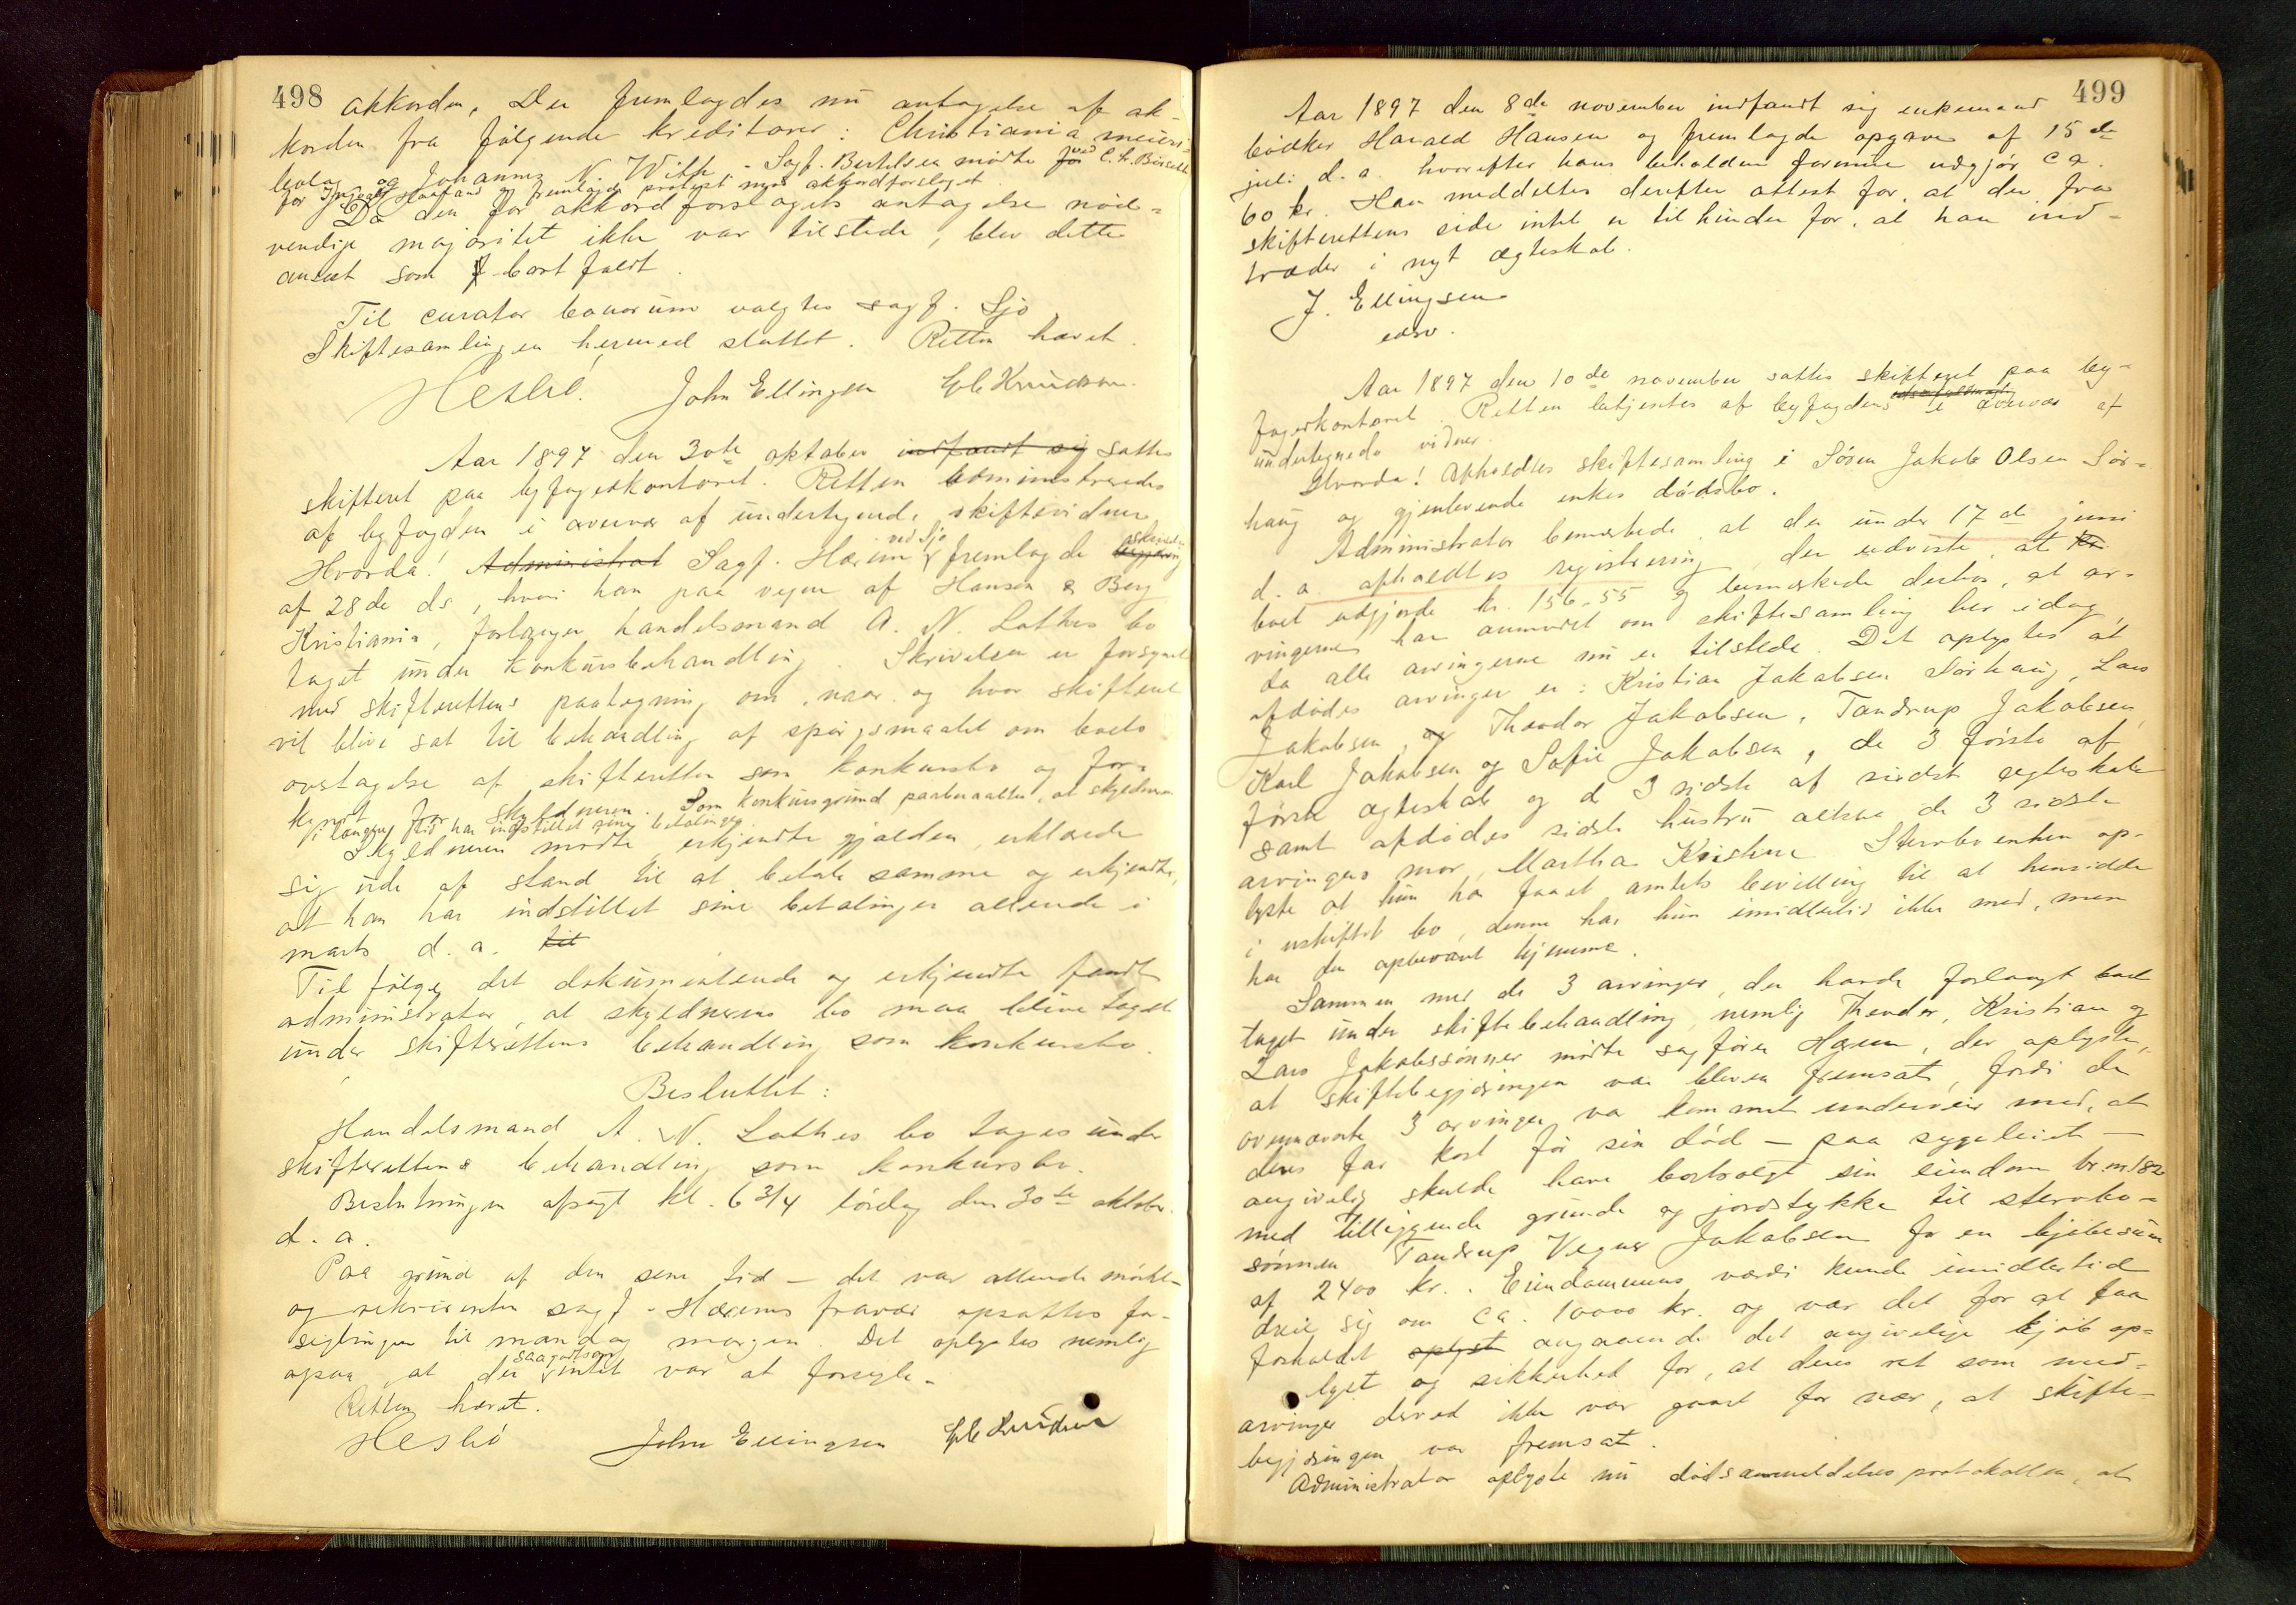 498
akkorden. Der fremlagdes nu antagelse af ak-
korden fra følgende kreditorer: Christiania meieri-
bolag og Johannes N. With. Sagf. Bertelsen mødte ved C. L.
for Hovland og fremlagde protest mod akkordforslaget.
Da den for akkordforslagets antagelse nød-
vendige majoritet ikke var tilstede, blev dette
anseet som bortfaldt.
Til curator bonorum valgtes sagf. Sjo
Skiftesamlingen hermed sluttet. Retten hævet.
Hesbö. John Ellingsen Knudsen.
Aar 1897 den 30te oktober indfandt sig sattes
skifteret paa byfogedkontoret. Retten administreredes
af byfogden i overvær af undertegnede skiftevidner
Hvorda! Administrat Sagf. Hærem ved Sjo fremlagde skrivelse begjæring
af 28de ds, hvori han paa vegne af Hansen & Berg
Kristiania, forlanger handelsmand A. N. Lothes bo
taget under konkursbehandling. Skrivelsen er forsynet
med skifterettens paategning om, naar og hvor skifteret
vil blive sat til behandling af spørgsmaalet om boets
overtagelse af skifteretten som konkursbo og for-
kyndt for skyldneren. Som konkursgrund paaberaabtes, at skyldneren
i længere tid har indstillet sine betalinger.
Skyldneren mødte erkjendte gjælden, erklærede
sig ude af stand til at betale samme og erkjendte,
at han har indstillet sine betalinger allerede i
marts d. a. til
Til følge det dokumenterede og erkjendte fandt
administrator, at skyldnerens bo maa blive taget
under skifterettens behandling som konkursbo.
Besluttet:
Handelsmand A. N. Lothes bo tages under
skifterettens behandling som konkursbo.
Beslutningen afsagt kl. 6 3/4 lørdag den 30te oktober
d. a.
Paa grund af den sene tid – det var allerede mørkt –
og rekvirenten sagf. Hærems fravær opsattes for-
seglingen til mandag morgen. Det oplystes nemlig
ogsaa, at der saagodtsom intet var at forsegle.
Retten hævet.
Hesbö John Ellingsen Knudsen
499
Aar 1897 den 8de november indfandt sig enkemand
bödker Harald Hansen og fremlagde opgave af 15de
juli d. a. hvorefter hans beholdne formue udgjør ca.
60 kr. Han meddeltes derefter attest for, at der fra
skifterettens side intet er til hinder for, at han ind-
træder i nyt ægteskab.
J. Ellingsen
edsv.
Aar 1897 den 10de november sattes skifteret paa by-
fogedkontoret. Retten betjentes af byfogdens edsv. fuldmægtig i overvær af
undertegnede vidner.
Hvorda! Afholdtes skiftesamling i Sören Jakob Olsen Sör-
haug og gjenlevende enkes dødsbo.
Administrator bemærkede, at der under 17de juni
d. a. afholdtes registrering, der udviste, at kr.
boet udgjorde kr. 156.55 og bemærkede derhos, at ar-
vingerne har anmodet om skiftesamling her idag,
da alle arvingerne nu er tilstede. Det oplystes at
afdødes arvinger er: Kristian Jakobsen Sørhaug, Lars
Jakobsen, og Theodor Jakobsen, Tandrup Jakobsen,
Karl Jakobsen og Sofie Jakobsen, de 3 første af
første ægteskab og de 3 sidste af sidste ægteskab
samt afdødes sidste hustru altsaa de 3 sidste
arvingers mor, Martha Kristine Sterbo enken op-
lyste at hun har faaet amtets bevilling til at hensidde
i uskiftet bo, denne har hun imidlertid ikke med, men
har den opbevaret hjemme.
Sammen med de 3 arvinger, der havde forlangt boet
taget under skiftebehandling, nemlig Theodor, Kristian og
Lars Jakobssønner mødte sagfører Hærem, der oplyste,
at skiftebegjæringen var bleven fremsat, fordi de
ovennævnte 3 arvinger var kommet underveir med, at
deres far kort för sin død – paa sygeleiet –
angivelig skulde have bortsolgt sin eiendom br. n. 182
med tilliggende grunde og jordstykke til sterbo-
sønnen Tandrup Vegner Jakobsen for en kjøbesum
af 2400 kr. Eiendommens værdi kunde imidlertid
dreie sig om ca. 10000 kr. og var det for at faa
forholdet oplyst angaaende det angivelige kjøb op-
lyst og sikkerhed for, at deres ret som med-
arvinger derved ikke var gaaet for nær, at skifte-
begjæringen var fremsat.
Administrator oplyste nu dødsanmeldelsesprotokollen, at